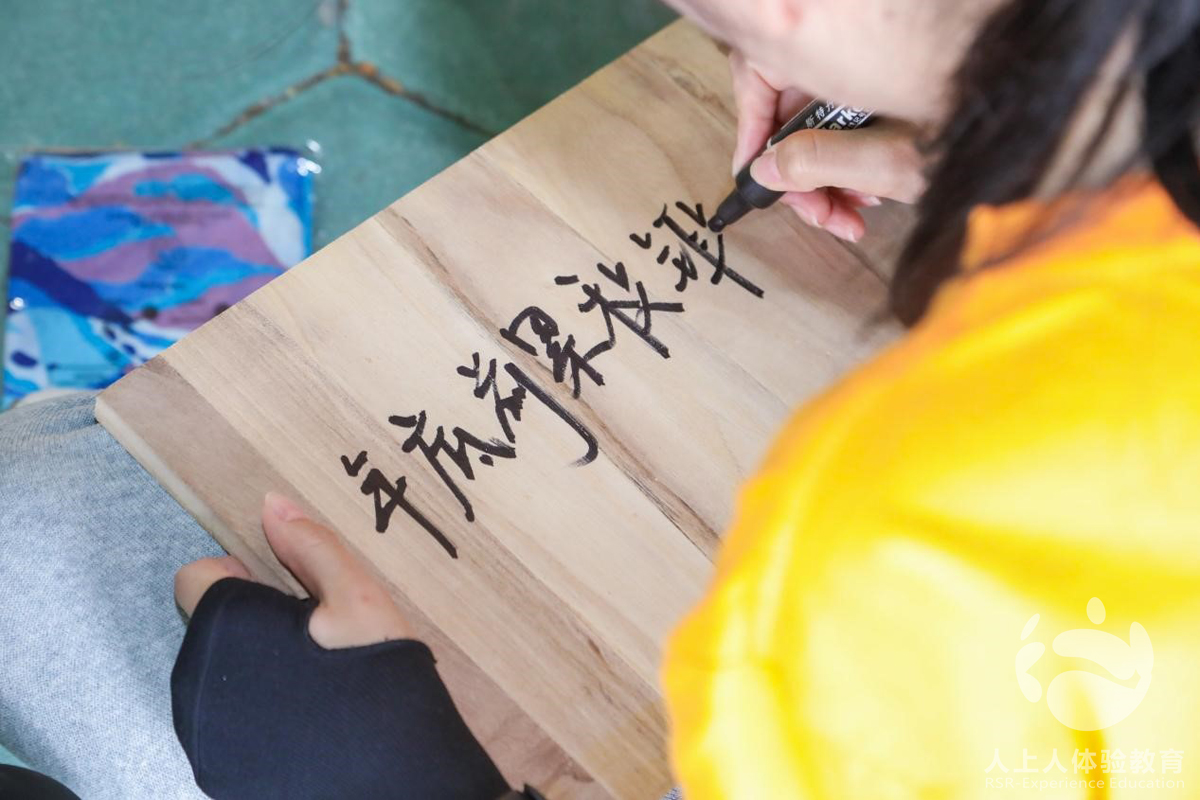 年底前累积
人上人体验教育
RSR-Experience Education